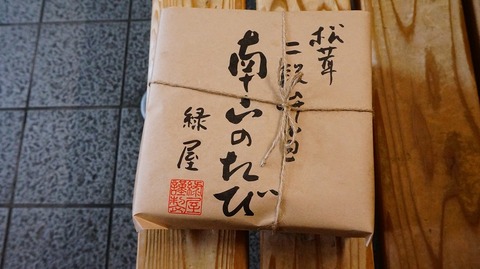 松茸
二段弁当
南山のたび
緑屋